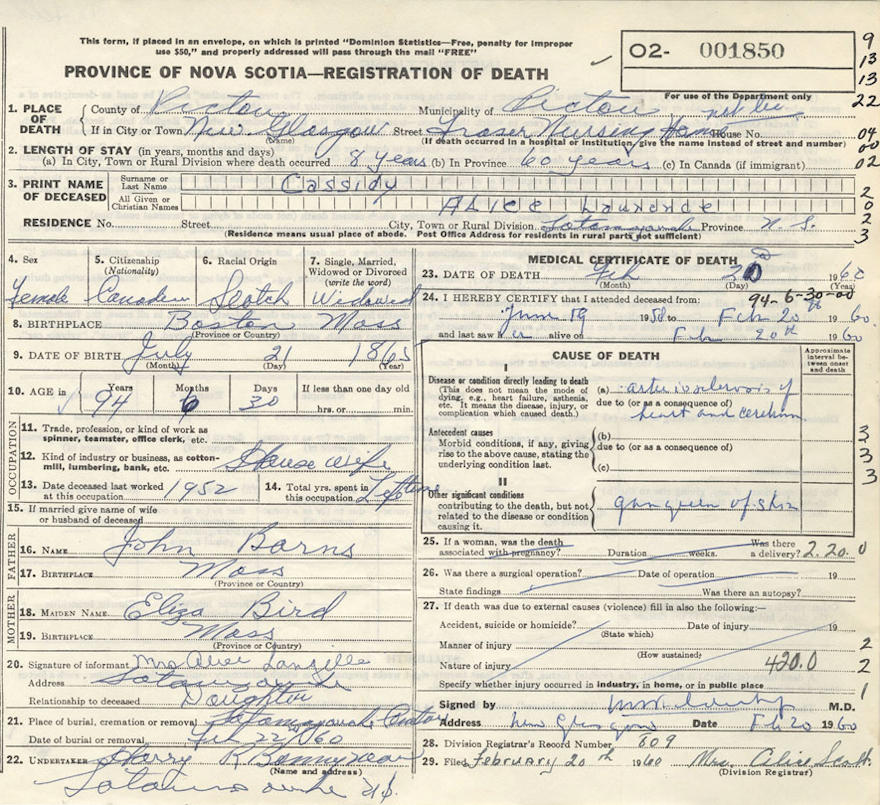 This form, if placed in an envelope, on which is printed "Dominion Statistics—Free, penalty for improper
use $50," and properly addressed will pass through the mail "FREE"
PROVINCE OF NOVA SCOTIA—REGISTRATION OF DEATH
O2- 001850
For use of the Department only
9
13
13
22
04
00
02
2
0
2
3
1. PLACE OF DEATH County of Pictou Municipality of Pictou
If in City or Town New Glasgow Street Fraser Nursing Home House No.
(Name) (If death occurred in a hospital or institution, give the name instead of street and number)
2. LENGTH OF STAY (in years, months and days)
(a) In City, Town or Rural Division where death occurred 8 years (b) In Province 60 years (c) In Canada (if immigrant)
3. PRINT NAME OF DECEASED Surname or Last Name Cassidy
All Given or Christian Names Alice Laurence
RESIDENCE No. Street City, Town or Rural Division Tatamagouche Province N. S.
(Residence means usual place of abode. Post Office Address for residents in rural parts not sufficient)
4. Sex Female
5. Citizenship (Nationality) Canadian
6. Racial Origin Scotch
7. Single, Married, Widowed or Divorced (write the word) Widowed
8. BIRTHPLACE Boston Mass
(Province or Country)
9. DATE OF BIRTH July 21 1865
(Month) (Day) (Year)
10. AGE in Years 94 Months 6 Days 30 If less than one day old hrs. or min.
OCCUPATION
11. Trade, profession, or kind of work as spinner, teamster, office clerk, etc.
12. Kind of industry or business, as cotton-mill, lumbering, bank, etc. House wife
13. Date deceased last worked at this occupation 1952
14. Total yrs. spent in this occupation Lifetime
15. If married give name of wife or husband of deceased
FATHER
16. NAME John Barns
17. BIRTHPLACE Mass
(Province or Country)
MOTHER
18. MAIDEN NAME Eliza Bird
19. BIRTHPLACE Mass
(Province or Country)
20. Signature of informant Mrs Alice Langille
Address Tatamagouche
Relationship to deceased Daughter
21. Place of burial, cremation or removal Tatamagouche
Date of burial or removal Feb 22nd 1960
22. UNDERTAKER Harry R Bonnyman
(Name and address)
Tatamagouche N.S.
MEDICAL CERTIFICATE OF DEATH
23. DATE OF DEATH Feb 20 1960
(Month) (Day) (Year)
94-6-30-00
24. I HEREBY CERTIFY that I attended deceased from:
June 19 1958 to Feb 20th 1960
and last saw her alive on Feb 20th 1960
CAUSE OF DEATH
Approximate interval between onset and death
I
Disease or condition directly leading to death
(This does not mean the mode of dying, e.g., heart failure, asthenia, etc. It means the disease, injury, or complication which caused death.)
(a) arteriosclerosis of
due to (or as a consequence of)
heart and cerebrum
Antecedent causes
Morbid conditions, if any, giving rise to the above cause, stating the underlying condition last.
(b)
due to (or as a consequence of)
(c)
3
3
3
II
Other significant conditions
contributing to the death, but not related to the disease or condition causing it.
25. If a woman, was the death associated with pregnancy? Duration weeks. Was there a delivery? 2.20.0
26. Was there a surgical operation? Date of operation 19
State findings Was there an autopsy?
27. If death was due to external causes (violence) fill in also the following:—
Accident, suicide or homicide? Date of injury 19
(State which)
Manner of injury 2
(How sustained)
Nature of injury 420.0 2
Specify whether injury occurred in industry, in home, or in public place 1
Signed by M.D.
Address New Glasgow Date Feb 20 1960
28. Division Registrar's Record Number 809
29. Filed February 20th 1960 Mrs. Alice Scott
(Division Registrar)